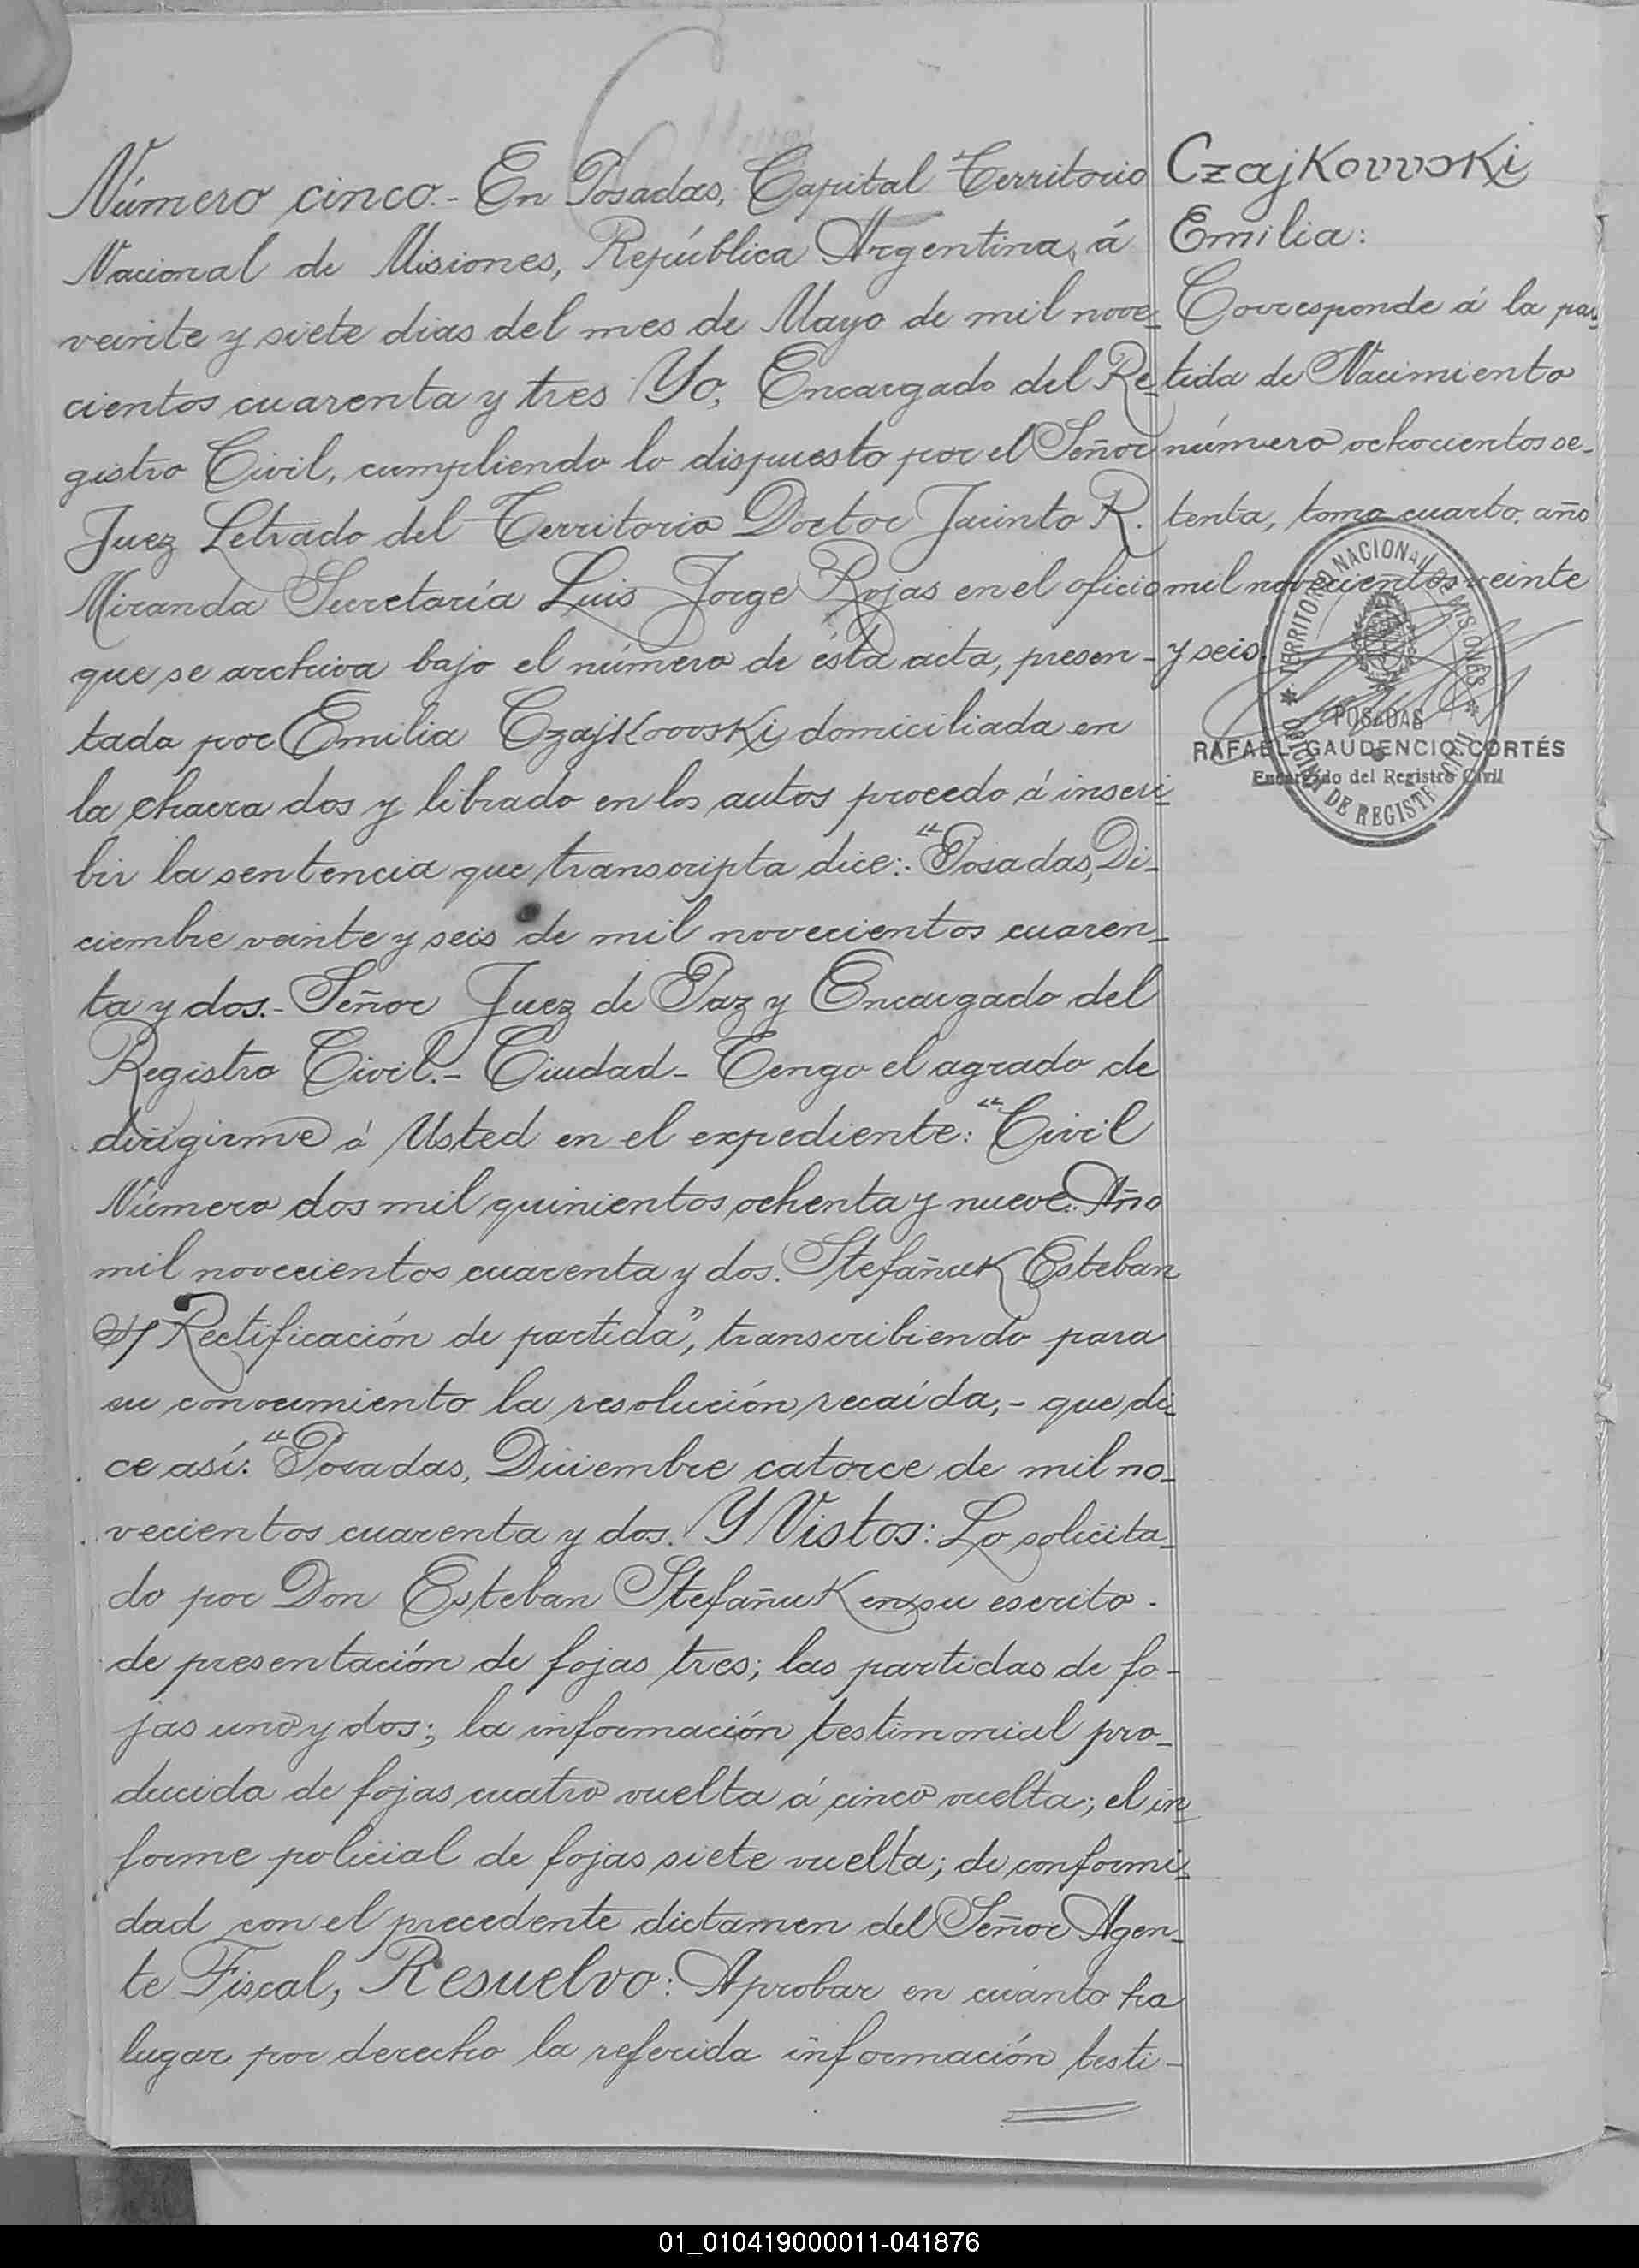 Número cinco.- En Posadas, Capital Territorio
Nacional de Misiones, República Argentina, á
veinte y siete dias del mes de Mayo de mil nove-
cientos cuarenta y tres Yo, Encargado del Re-
gistro Civil, cumpliendo lo dispuesto por el Señor
Juez Letrado del Territorio Doctor Jacinto R.
Miranda Secretaría Luis Jorge Rojas en el oficio
que se archiva bajo el número de ésta acta, presen-
tada por Emilia Czajkovvski domiciliada en
la chacra dos y librado en los autos procedo á inscri-
bir la sentencia que transcripta dice: "Posadas, Di-
ciembre veinte y seis de mil novecientos cuaren-
ta y dos.- Señor Juez de Paz y Encargado del
Registro Civil.- Ciudad- Tengo el agrado de
dirigirme á Usted en el expediente: "Civil
Número dos mil quinientos ochenta y nueve. Año
mil novecientos cuarenta y dos. Stefañuk Esteban
s/ Rectificación de partida", transcribiendo para
su conocimiento la resolución recaída,- que di-
ce así: "Posadas, Diciembre catorce de mil no-
vecientos cuarenta y dos. Y Vistos: Lo solicita-
do por Don Esteban Stefañuk en su escrito
de presentación de fojas tres; las partidas de fo-
jas uno y dos; la información testimonial pro-
ducida de fojas cuatro vuelta á cinco vuelta; el in-
forme policial de fojas siete vuelta; de conformi-
dad con el precedente dictamen del Señor Agen-
te Fiscal, Resuelvo: Aprobar en cuánto ha
lugar por derecho la referida información testi-
Czajkovvski
Emilia:
Corresponde á la par-
tida de Nacimiento
número ochocientos se-
tenta, tomo cuarto, año
mil novecientos veinte
y seis.
TERRITORIO NACIONAL DE MISIONES
POSADAS
OFICINA DE REGISTRO CIVIL
RAFAEL GAUDENCIO CORTÉS
Encargado del Registro Civil
01_010419000011-041876